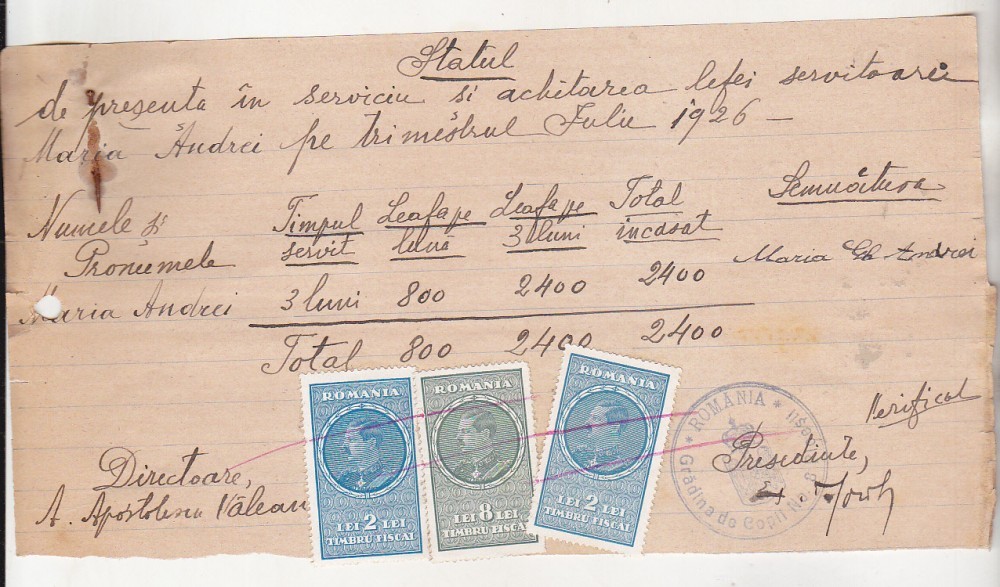 Statul
de presența în serviciu si achitarea lefei servitoarei
Maria Andrei pe trimestrul Iulie 1926 –
Numele și Pronumele
Timpul servit
Leafa pe luna
Leafa pe 3 luni
Total incasat
Semnătura
Maria Andrei 3 luni 800 2400 2400 Maria Gh Andrei
Total 800 2400 2400
Verificat
Directoare,
A. Apostolescu Văleanu
Presedinte,
ROMANIA
LEI 2 LEI
TIMBRU FISCAL
ROMANIA
LEI 8 LEI
TIMBRU FISCAL
ROMANIA
LEI 2 LEI
TIMBRU FISCAL
ROMÂNIA
Grădina de Copii No. 8